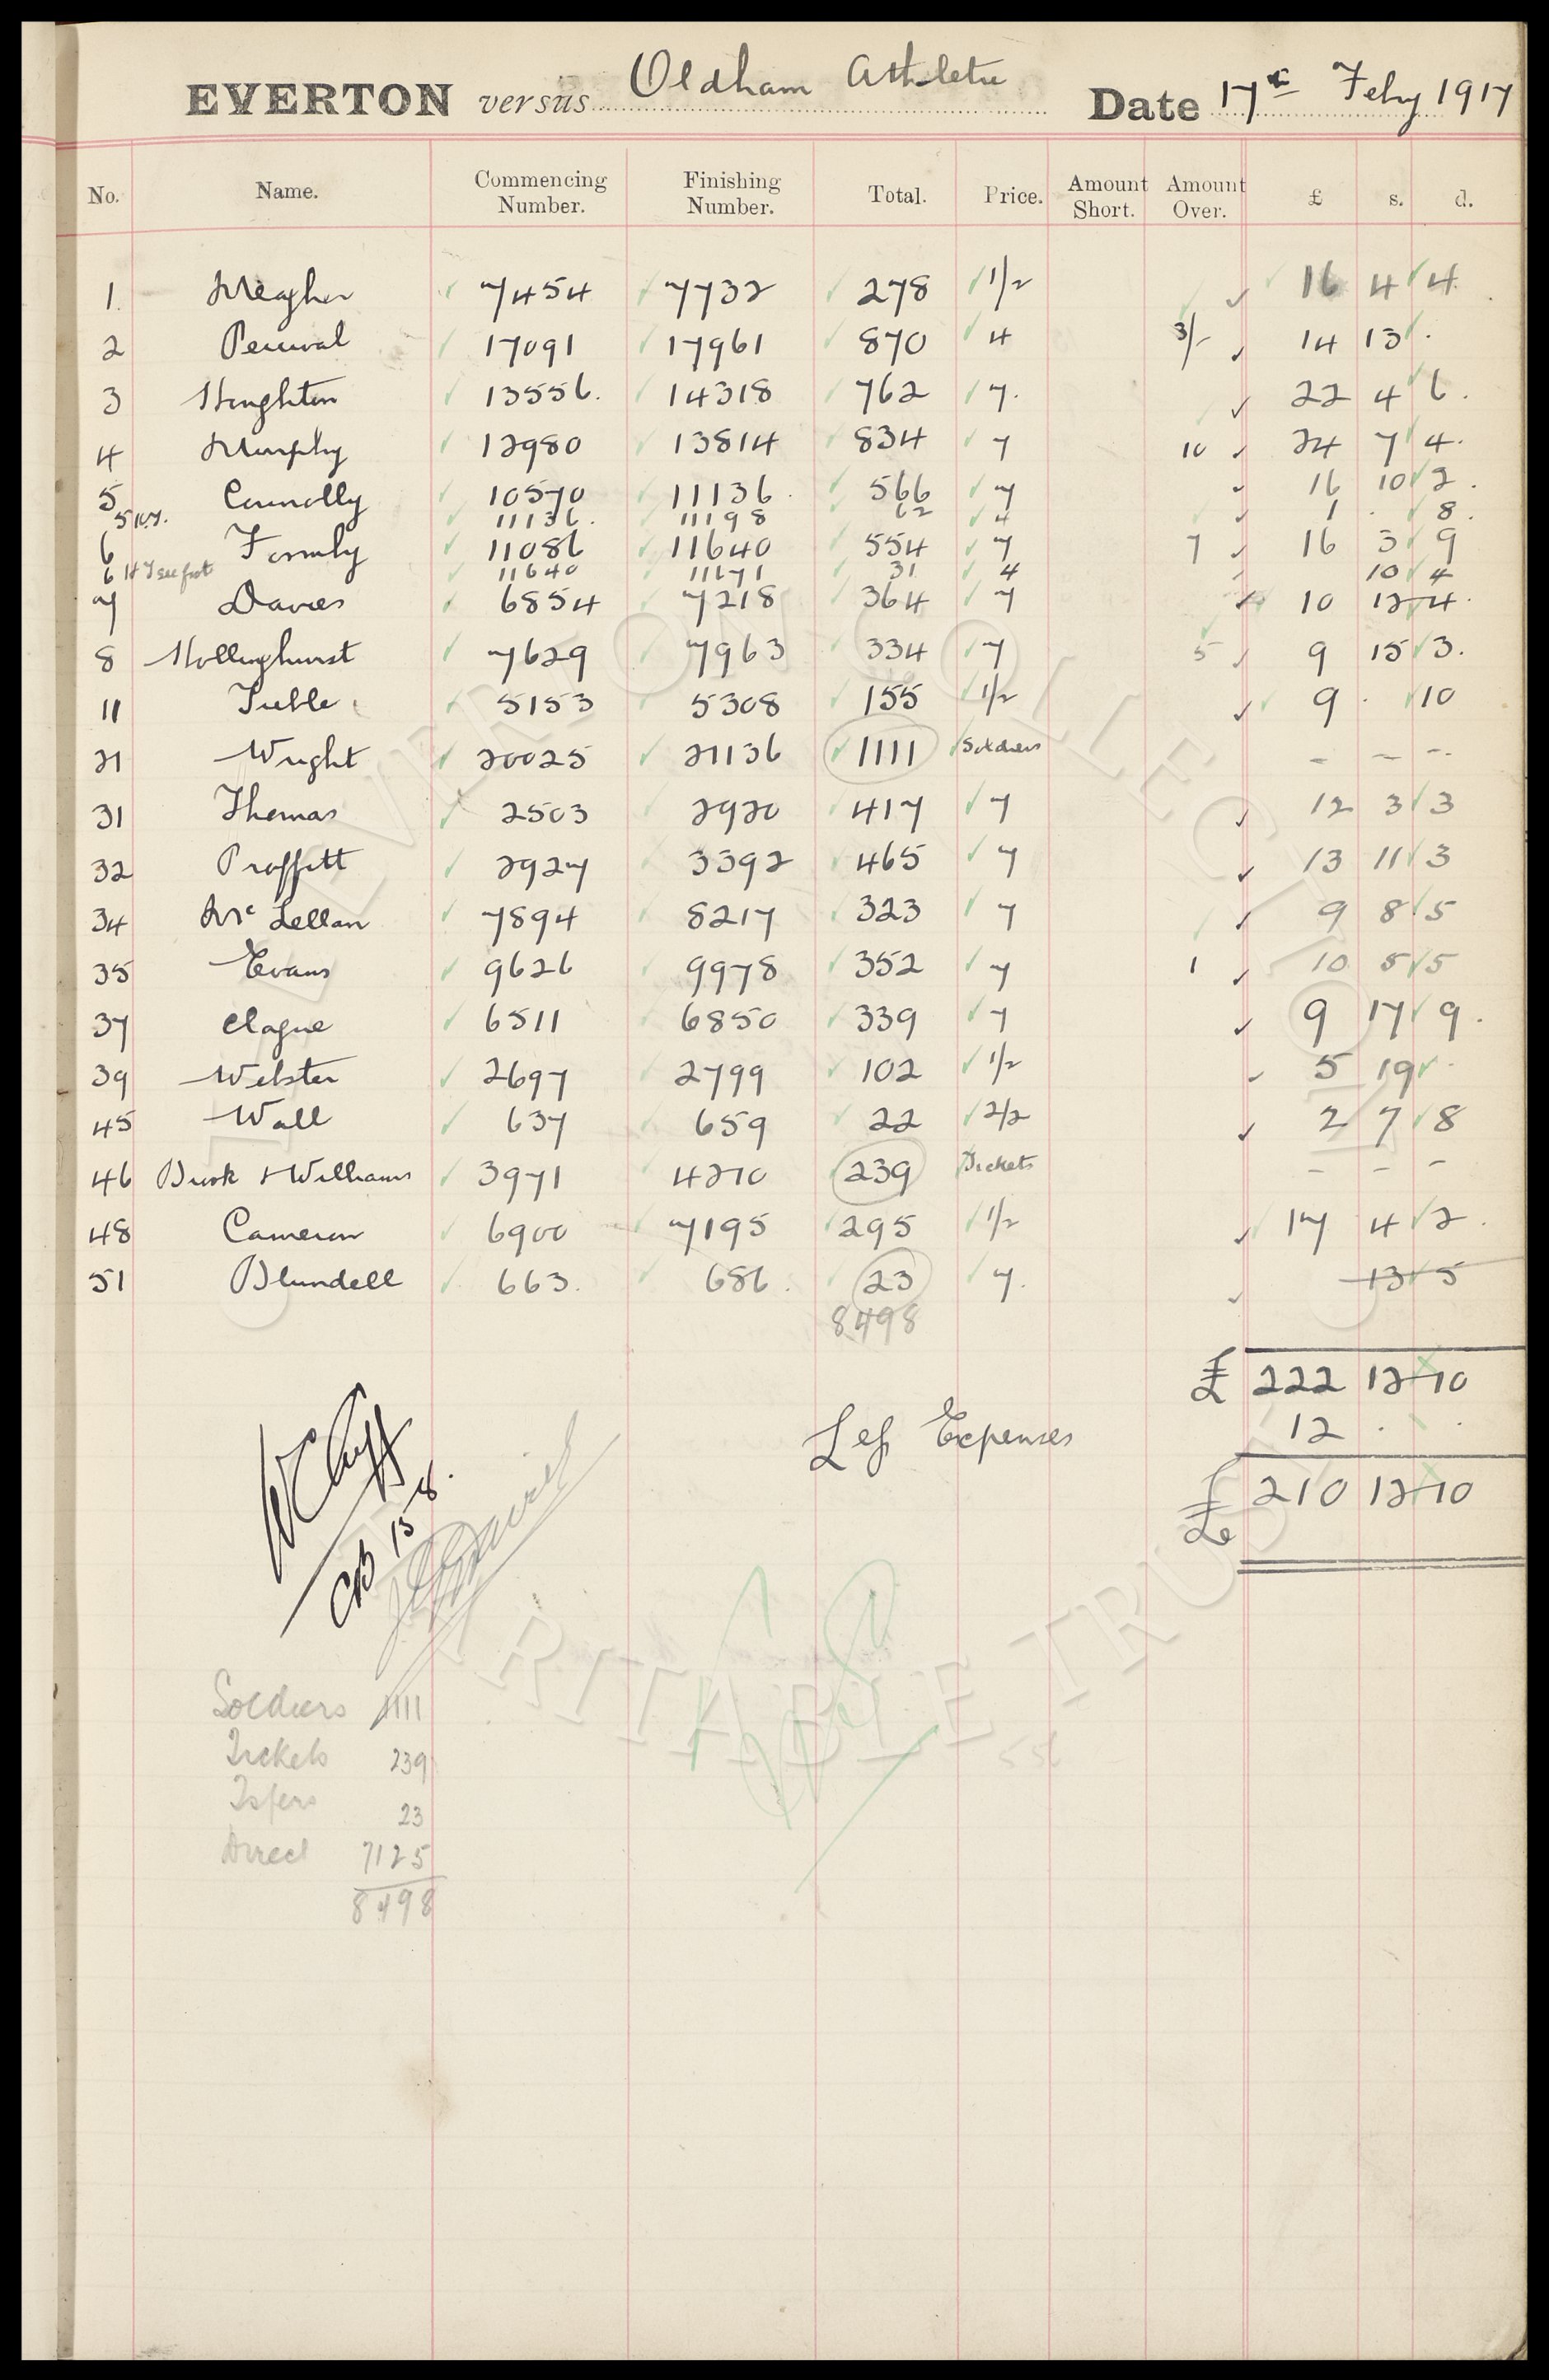 EVERTON versus Oldham Athletic Date 17th Feby 1917
No. Name. Commencing Number. Finishing Number. Total. Price. Amount Short. Amount Over. £ s. d.
1. Meagher 7454 7732 278 1/2 16 4 4
2 Percival 17091 17961 870 4 3/- 14 13 .
3 Houghton 13556. 14318 762 7. 22 4 6.
4 Murphy 12980 13814 834 7 10 24 7 4.
5 Connolly 10570 11136. 566 7 16 10 2.
5 11136. 11198 62 4 1 . 8.
6 Formby 11086 11640 554 7 7 16 3 9
6 11640 11671 31 4 10 4
7 Davies 6854 7218 364 7 10 12 4.
8 Hollinghurst 7629 7963 334 7 5 9 15 3.
11 Tubble 5153 5308 155 1/2 9 . 10
21 Wright 20025 21136 1111 Soldiers – – –
31 Thomas 2503 2920 417 7 12 3 3
32 Proffitt 2927 3392 465 7 13 11 3
34 Mc Lellan 7894 8217 323 7 9 8 5
35 Evans 9626 9978 352 7 1 10 5 5
37 Clague 6511 6850 339 7 9 17 9.
39 Webster 2697 2799 102 1/2 5 19 .
45 Wall 637 659 22 2/2 2 7 8
46 Busk & Williams 3971 4210 239 Tickets – – –
48 Cameron 6900 7195 295 1/2 17 4 2.
51 Blundell 663. 686. 23 7. 13 5
8498
£ 222 12 10
Less Expenses 12 . .
£ 210 12 10
W C Cuff
CB 15 8.
Soldiers 1111
Tickets 239
Tsfers 23
Direct 7125
8498
EVERTON COLLECTION CHARITABLE TRUST